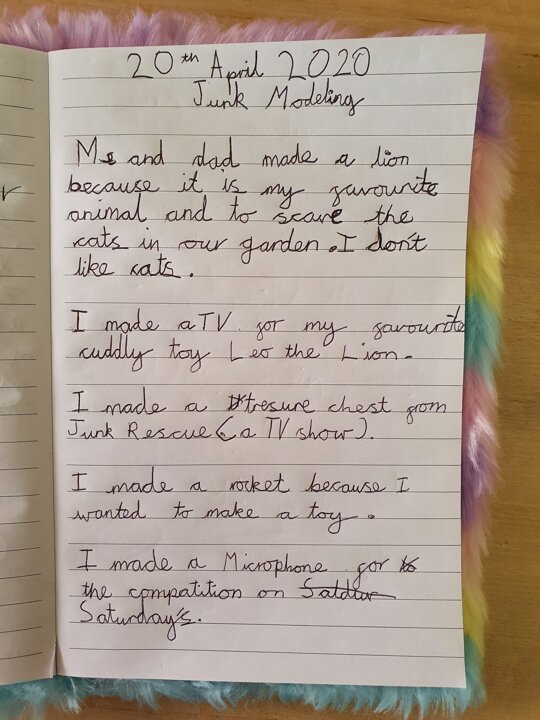 20th April 2020
Junk Modeling
Me and dad made a lion
because it is my favourite
animal and to scare the
cats in our garden. I don't
like cats.
I made a TV for my favourite
cuddly toy Leo the Lion.
I made a tresure chest from
Junk Rescue (a TV show).
I made a rocket because I
wanted to make a toy.
I made a Microphone for
the compatition on
Saturday's.